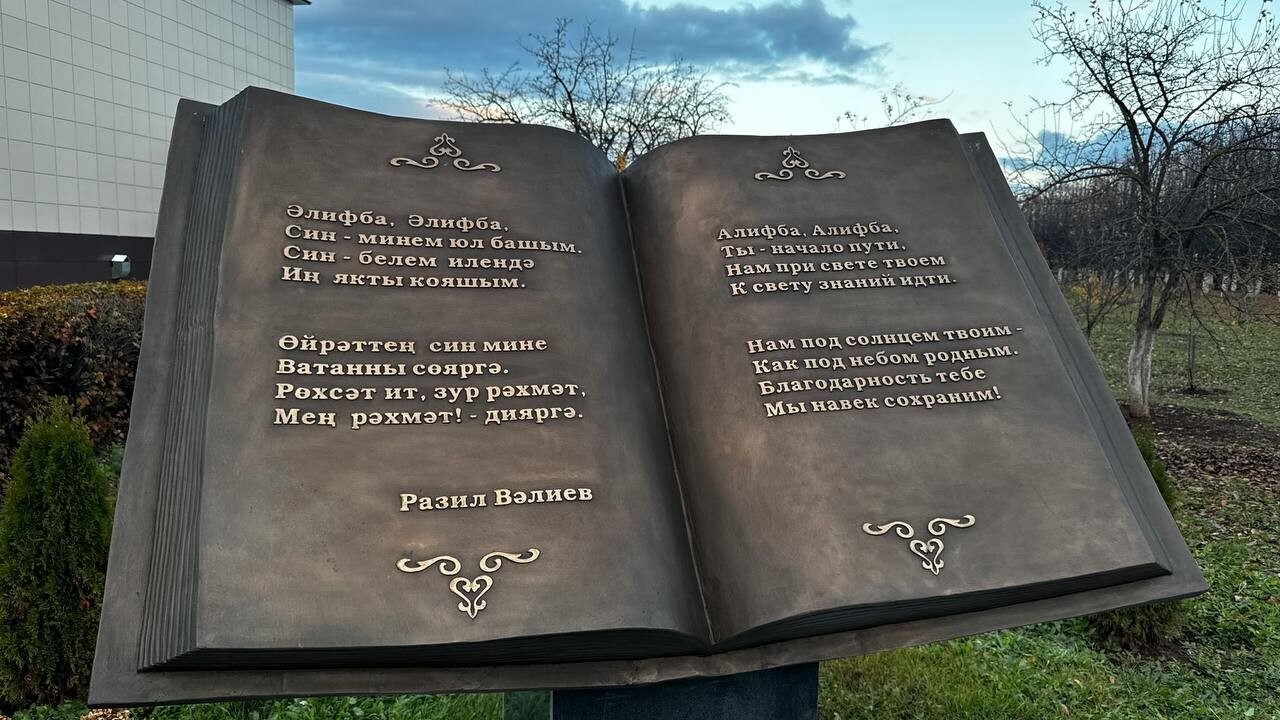 Әлифба, Әлифба,
Син - минем юл башым.
Син - белем илендә
Иң якты кояшым.
Өйрәттең син мине
Ватанны сөяргә.
Рөхсәт ит, зур рәхмәт,
Мең рәхмәт! - дияргә.
Разил Вәлиев
Алифба, Алифба,
Ты - начало пути,
Нам при свете твоем
К свету знаний идти.
Нам под солнцем твоим -
Как под небом родным.
Благодарность тебе
Мы навек сохраним!